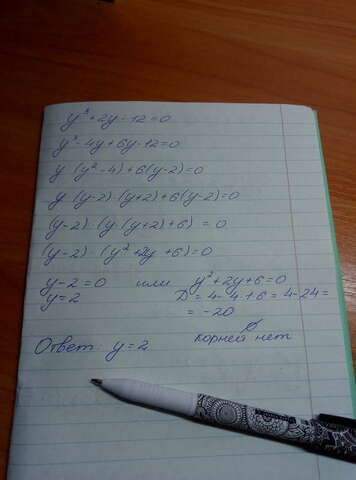 y³+2y-12=0
y³-4y+6y-12=0
y·(y²-4)+6(y-2)=0
y·(y-2)·(y+2)+6(y-2)=0
(y-2)·(y·(y+2)+6) = 0
(y-2)·(y²+2y+6)=0
y-2=0 или y²+2y+6=0
y=2 D=4-4·1·6=4-24=
=-20
∅
корней нет
Ответ: y=2